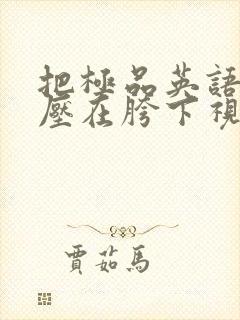 把極品英語
壓在胯下視
賈茹馬